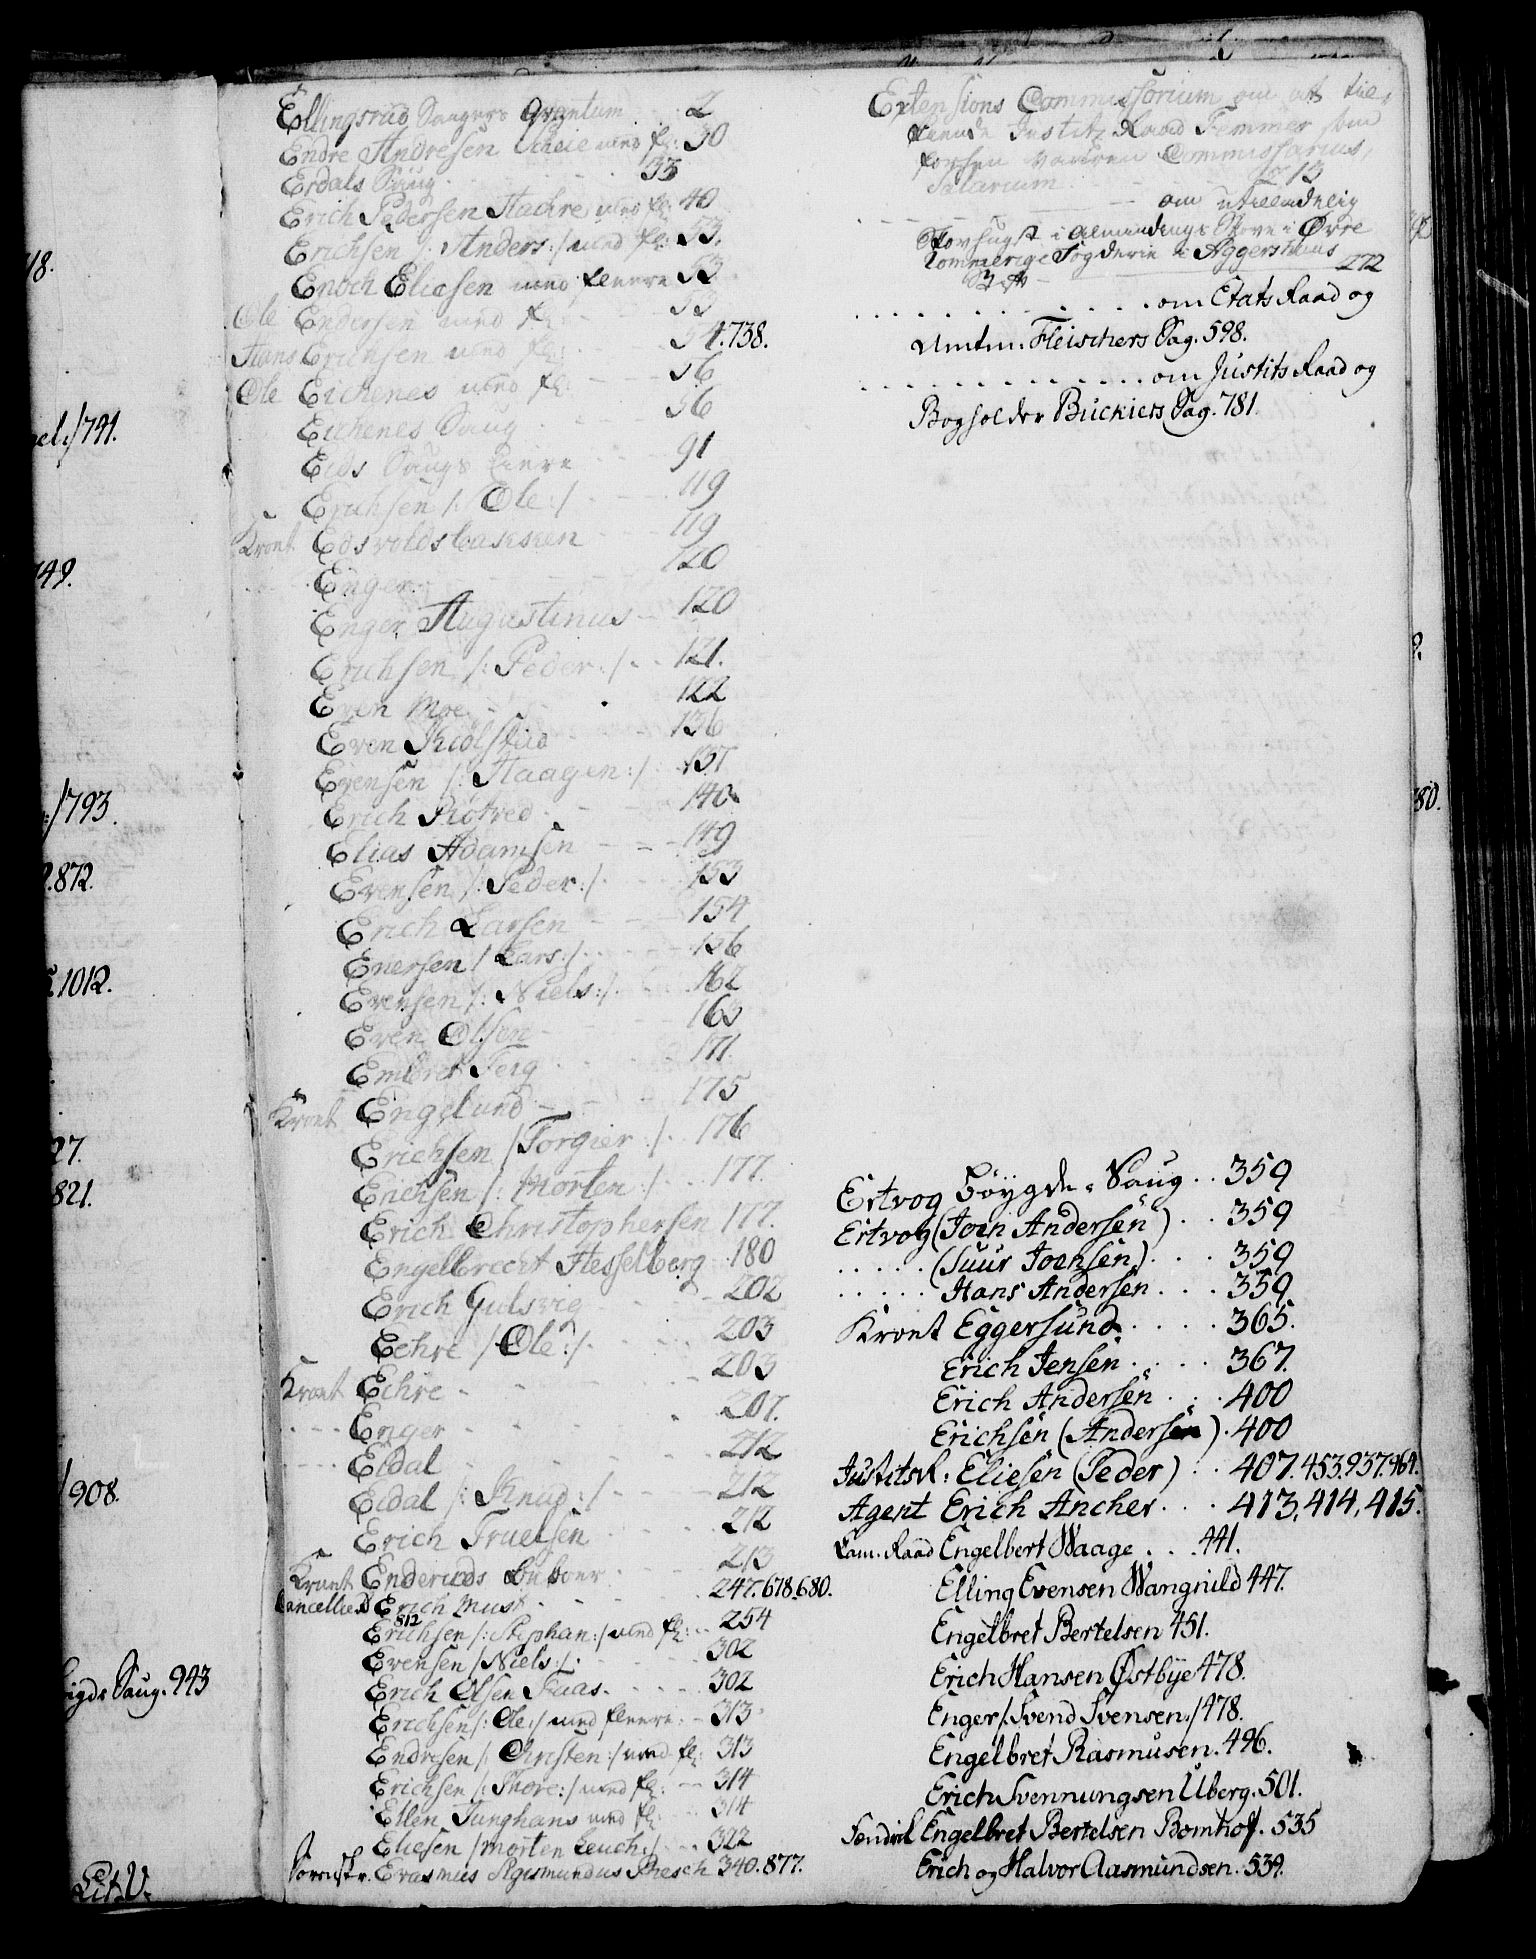 Ellingsrud Saugers Qvantum 2
Endre Andresen Scheie med fl: 30
Erdals Saug 33
Erich Pedersen Hachre med fl: 40
Erichsen /: Anders:/ med fl: 53.
Enoch Eliesen med fleere 53
Ole Endersen med fl: 53
Hans Erichsen med fl: 54.738.
Ole Eichenes med fl: 56
Eichenes Saug 56
Eids Saugs Eiere 91
Erichsen /: Ole:/ 119
Kront Edsvoldsbachken 119
Enger 120
Enger Augustinus 120
Erichsen /: Peder:/ 121.
Even Moe 122
Even Kiølstad 136
Evensen /: Haagen:/ 137
Erich Røtved 140
Elias Adamsen 149
Evensen /: Peder:/ 153
Erich Larsen 154
Enersen / Lars:/ 156
Evensen /: Niels:/ 162
Even Olsen 163
Embret Berg 171.
Kront Engelund 175
Erichsen /Torgier:/ 176
Erichsen /: Morten:/ 177.
Erich Christophersen 177.
Engelbrecht Hesselberg 180
Erich Gulsvig 202
Echre /Ole:/ 203
Kront Echre 203
Enger 207.
Eldal 212
Eldal /: Knud:/ 212
Erich Truelsen 212
Kront Enderuds Beboer 213
Cancellier Erich Must 247.678.680.
812
Erichsen /: Stephan:/ med fl: 254
Evensen /Niels:/ 302
Erich Olsen Haas. 302
Erichsen /: Ole:/ med fleere. 313
Endresen /: Christen:/ med fl: 313
Erichsen /: Thore:/ med fl: 314
Ellen Junghans med fl: 314
Eliesen /Morten Leuch:/ 322
Sorenskr. Erasmus Sigismundus Resch 340.877.
Extensions Commissorium om at til
kiende Justitz Raad Femmer som
forhen værende Commissarius,
Salarium 13
om utilladelig
Skovhugst i Almindings Skove i Øvre
Rommerige Fogderie i Aggershuus
Stift 272
om Etats Raad og
Amtm. Fleischers Sag. 598.
om Justits Raad og
Bogholder Buckiers Sag. 781.
Ertvog Bøygde Saug 359
Ertvog (Joen Andersen) 359
(Suur Joensen) 359
Hans Andersen 359
Kront Eggersund 365.
Erich Jensen 367.
Erich Andersen 400
Erichsen (Andersen) 400
Justitsr: Eliesen (Peder) 407.453.937.964.
Agent Erich Ancher 413, 414, 415.
Cam. Raad Engelbert Waage 441.
Elling Evensen Wangnild 447.
Engelbret Bertelsen 451.
Erich Hansen Østbye 478.
Enger /: Svend Svensen:/ 478.
Engelbret Rasmusen. 496.
Erich Svennungsen Uberg. 501.
Fendrik Engelbret Bertelsen Bomhof. 535
Erich og Halvor Aasmundsen. 539.